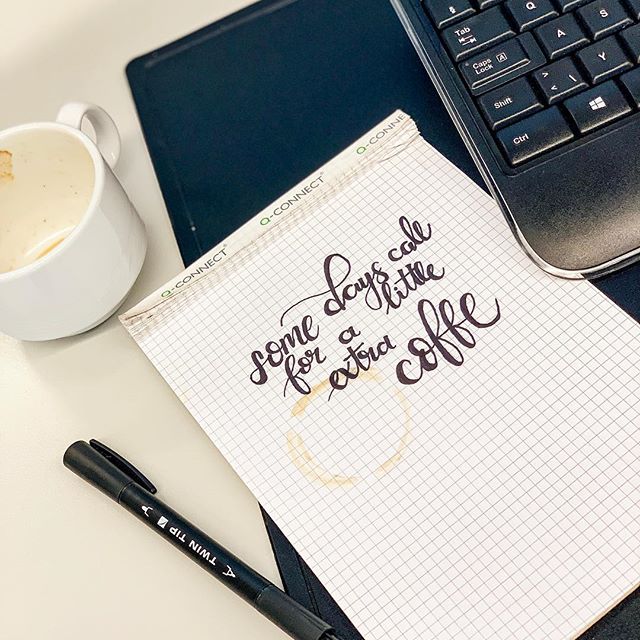 Tab
Q
Caps Lock A
A
S
Shift
>
< \
Y
Ctrl
Q-CONNECT®
Q-CONNECT®
Q-CONNE
some days call
for a little
extra coffe
TWIN TIP